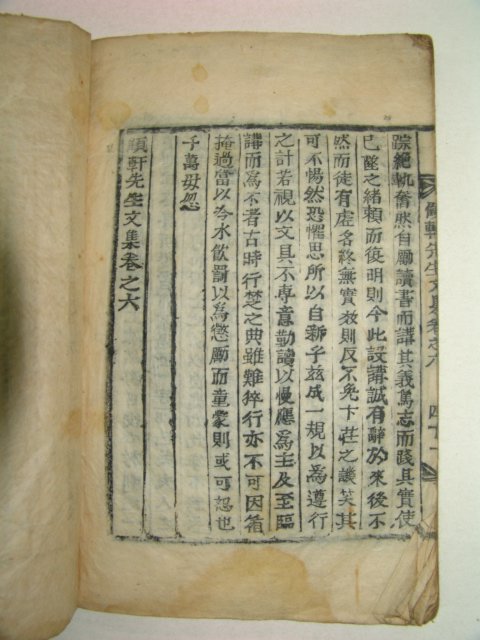 軒先生文集卷之六 四十
踪絶軌奮然自勵讀書而講其義篤志而踐其實使
已墜之緖賴而復明則今此設講誠有辭於來後不
然而徒有虛名終無實效則反不免卞莊之譏笑其
可不惕然恐懼思所以自新乎玆成一規以爲遵行
之計若視以文具不專意勤讀以慢應爲主及至臨
講而爲不者古時行楚之典雖難猝行亦不可因
掩過當以冷水飮罰以爲懲勵而童蒙則或可恕也
千萬毋忽
軒先生文集卷之六